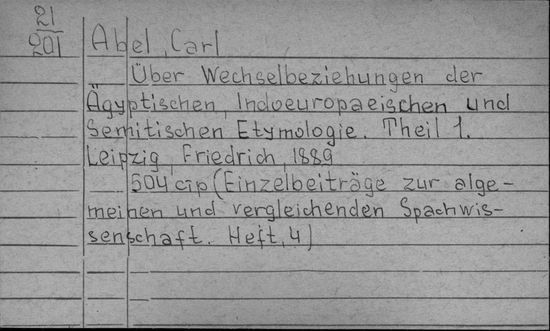 21
201
Abel, Carl
Über Wechselbeziehungen der
Ägyptischen, Indoeuropaeischen und
Semitischen Etymologie. Theil 1.
Leipzig, Friedrich, 1889
504 cтp (Einzelbeiträge zur alge-
meinen und vergleichenden Spachwis-
senschaft. Heft, 4)